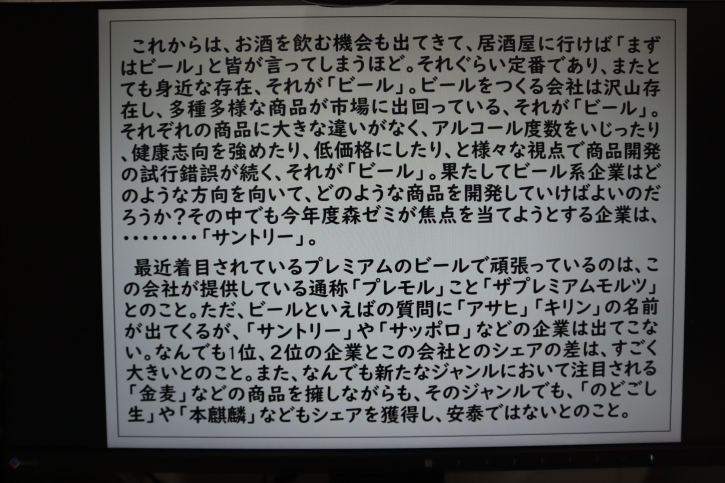 これからは、お酒を飲む機会も出てきて、居酒屋に行けば「まず
はビール」と皆が言ってしまうほど。それぐらい定番であり、またと
ても身近な存在、それが「ビール」。ビールをつくる会社は沢山存
在し、多種多様な商品が市場に出回っている、それが「ビール」。
それぞれの商品に大きな違いがなく、アルコール度数をいじったり
、健康志向を強めたり、低価格にしたり、と様々な視点で商品開発
の試行錯誤が続く、それが「ビール」。果たしてビール系企業はど
のような方向を向いて、どのような商品を開発していけばよいのだ
ろうか?その中でも今年度森ゼミが焦点を当てようとする企業は、
・・・・・・・・・「サントリー」。
最近着目されているプレミアムのビールで頑張っているのは、こ
の会社が提供している通称「プレモル」こと「ザプレミアムモルツ」
とのこと。ただ、ビールといえばの質問に「アサヒ」「キリン」の名前
が出てくるが、「サントリー」や「サッポロ」などの企業は出てこな
い。なんでも1位、2位の企業とこの会社とのシェアの差は、すごく
大きいとのこと。また、なんでも新たなジャンルにおいて注目される
「金麦」などの商品を擁しながらも、そのジャンルでも、「のどごし
生」や「本麒麟」などもシェアを獲得し、安泰ではないとのこと。